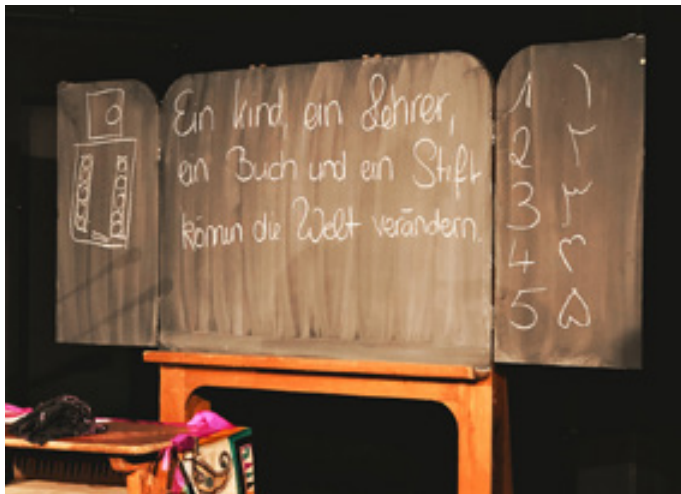 Ein Kind, ein Lehrer,
ein Buch und ein Stift
können die Welt verändern.
1 ۱
2 ۲
3 ۳
4 ۴
5 ۵